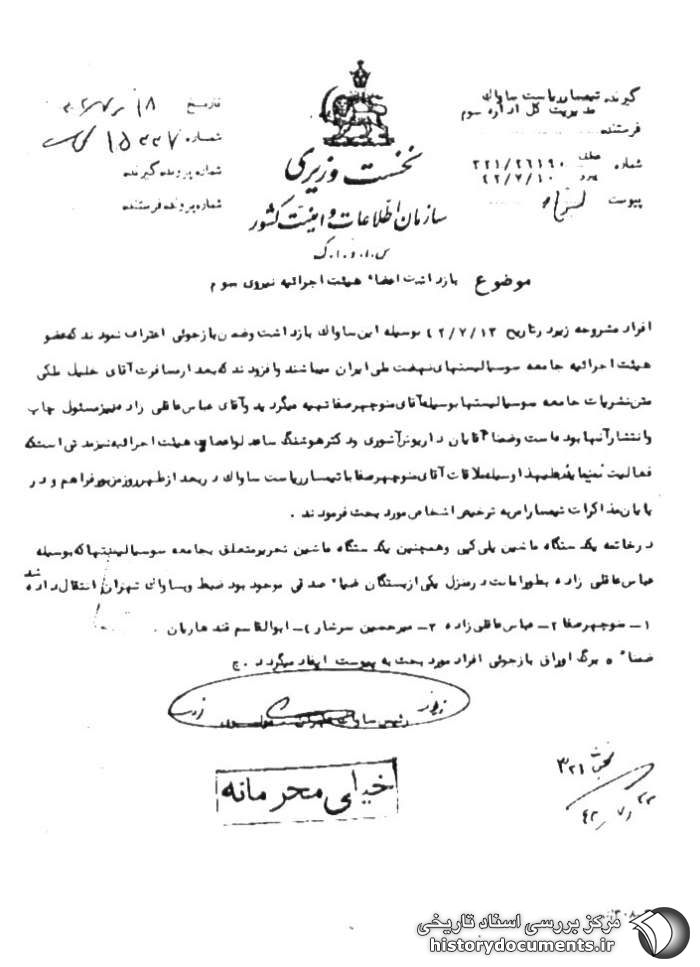 گیرنده تیمسار ریاست ساواک
مدیریت کل اداره سوم
فرستنده
شماره ۳۲۱/۲۶۱۹۰
پیرو ۴۲/۷/۱۰
پیوست
نخست وزیری
سازمان اطلاعات و امنیت کشور
س.ا.و.ا.ک
تاریخ
شماره ۱۵۳۳۷
شماره پرونده گیرنده
شماره پرونده فرستنده
موضوع بازداشت اعضاء هیئت اجرائیه نیروی سوم
افراد مشروحه زیر در تاریخ ۴۲/۷/۱۳ بوسیله این ساواک بازداشت وضمن بازجوئی اعتراف نمودند که عضو
هیئت اجرائیه جامعه سوسیالیستهای نهضت ملی ایران میباشند وافزودند که بعد از مسافرت آقای خلیل ملکی
متن نشریات جامعه سوسیالیستها بوسیله آقای منوچهر صفا تهیه میگردید وآقای عباس عاقلی زاده نیز مسئول چاپ
وانتشار آنها بوده است وضمنا آقایان داریوش آشوری ودکتر هوشنگ ساعدلو اعضای هیئت اجرائیه نیز مدتی است که
فعالیت لذا وسیله ملاقات آقای منوچهر صفا با تیمسار ریاست ساواک در بعد از ظهر روز مزبور فراهم و در
پایان مذاکرات تیمسار امر به ترخیص اشخاص مورد بحث فرمودند .
در خاتمه یک دستگاه ماشین پلی کپی وهمچنین یک دستگاه ماشین تحریر متعلق بجامعه سوسیالیستها که بوسیله
عباس عاقلی زاده بطور امانت در منزل یکی از بستگان موجود بود ضبط وبساواک تهران انتقال داده شد
۱ـ منوچهر صفا ۲ـ عباس عاقلی زاده ۳ـ میرحسین سرشار ۴ـ ابوالقاسم قندهاریان .
ضمناً ۵ برگ اوراق بازجوئی افراد مورد بحث به پیوست ایفاد میگردد . ج
رئیس ساواک تهران
خیلی محرمانه
بخش ۳۲۱
۴۲/۷/۲۲
مرکز بررسی اسناد تاریخی
historydocuments.ir